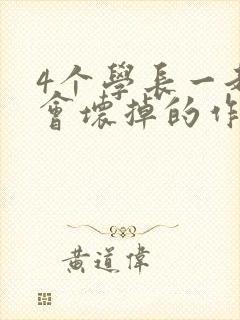 4个學長一
會壞掉的作
黃道偉